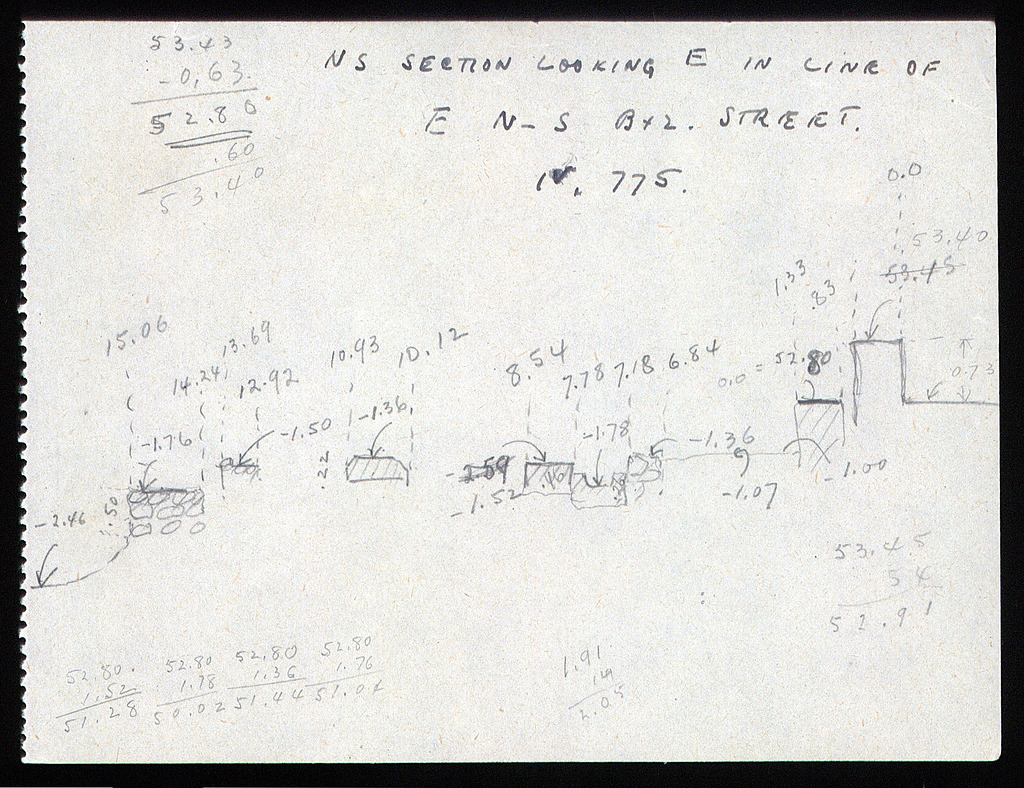 53.43
-0.63
52.80
.60
53.40
NS SECTION LOOKING E IN LINE OF
E N-S BYZ. STREET.
IV. 775.
0.0
53.40
53.45
1.33
.83
15.06
14.24
13.69
12.92
10.93
10.12
8.54
7.78
7.18
6.84
0.0 = 52.80
0.73
-1.76
-1.50
-1.36
.22
-1.59
-1.52
-1.78
-1.36
-1.07
-1.00
-2.46
.50
53.45
54
52.91
52.80
1.52
51.28
52.80
1.78
50.02
52.80
1.36
51.44
52.80
1.76
51.04
1.91
.14
2.05